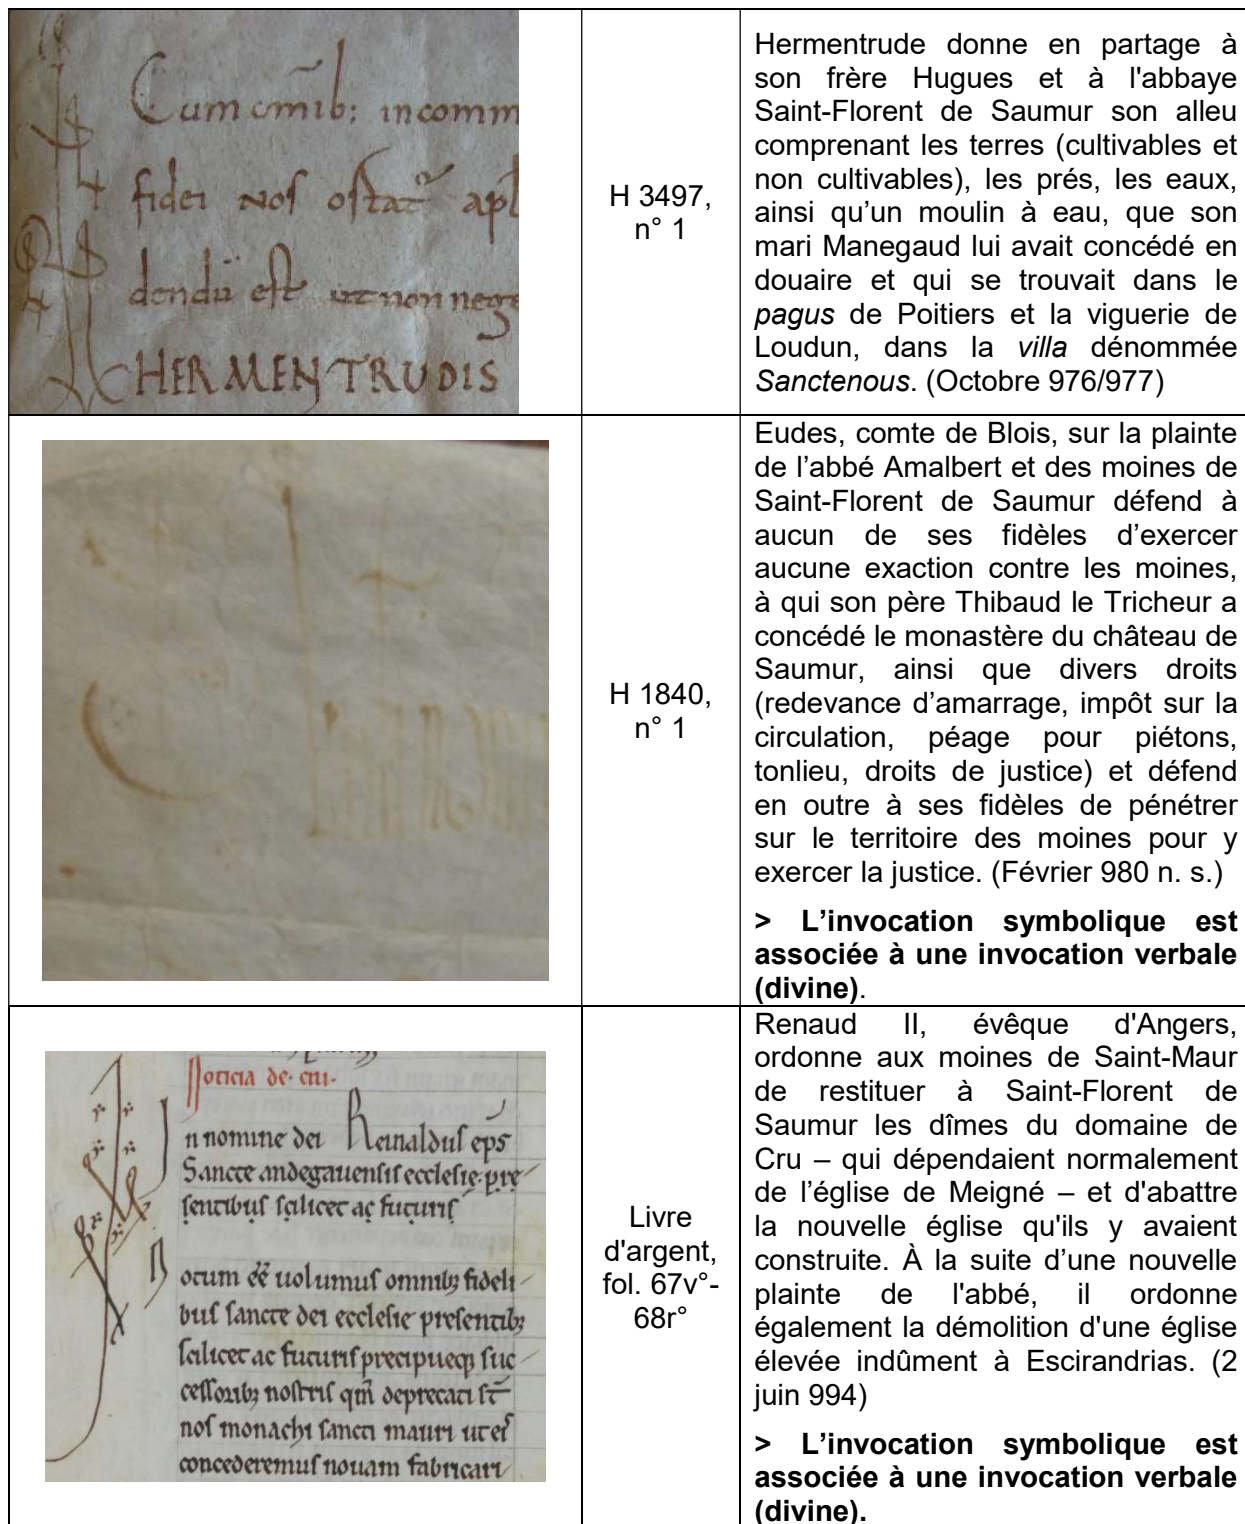 Cum omib; incomm
fidei nos ostat apl
dendū est ut non nege
HERMENTRUDIS
H 3497,
n° 1
Hermentrude donne en partage à
son frère Hugues et à l'abbaye
Saint-Florent de Saumur son alleu
comprenant les terres (cultivables et
non cultivables), les prés, les eaux,
ainsi qu’un moulin à eau, que son
mari Manegaud lui avait concédé en
douaire et qui se trouvait dans le
pagus de Poitiers et la viguerie de
Loudun, dans la villa dénommée
Sanctenous. (Octobre 976/977)
H 1840,
n° 1
Eudes, comte de Blois, sur la plainte
de l’abbé Amalbert et des moines de
Saint-Florent de Saumur défend à
aucun de ses fidèles d’exercer
aucune exaction contre les moines,
à qui son père Thibaud le Tricheur a
concédé le monastère du château de
Saumur, ainsi que divers droits
(redevance d’amarrage, impôt sur la
circulation, péage pour piétons,
tonlieu, droits de justice) et défend
en outre à ses fidèles de pénétrer
sur le territoire des moines pour y
exercer la justice. (Février 980 n. s.)
> L’invocation symbolique est
associée à une invocation verbale
(divine).
Noticia de cru.
In nomine dei Reinaldus eps
Sancte andegavensis ecclesie pre
sentibus scilicet ac futuris
Notum ee volumus omnib; fideli
bus sancte dei ecclesie presentib;
scilicet ac futuris precipueq; suc
cessorib; nostris qm deprecati st
nos monachi sancti mauri ut eis
concederemus novam fabricari
Livre
d'argent,
fol. 67v°-
68r°
Renaud II, évêque d'Angers,
ordonne aux moines de Saint-Maur
de restituer à Saint-Florent de
Saumur les dîmes du domaine de
Cru – qui dépendaient normalement
de l’église de Meigné – et d'abattre
la nouvelle église qu'ils y avaient
construite. À la suite d’une nouvelle
plainte de l'abbé, il ordonne
également la démolition d'une église
élevée indûment à Escirandrias. (2
juin 994)
> L’invocation symbolique est
associée à une invocation verbale
(divine).